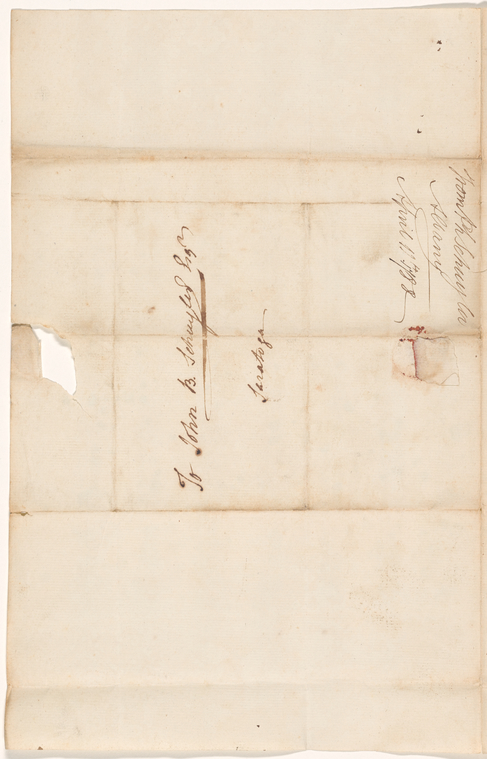 To John B. Schuyler Esqr
Saratoga
from Ph Schuyler
Albany
April 11 1788